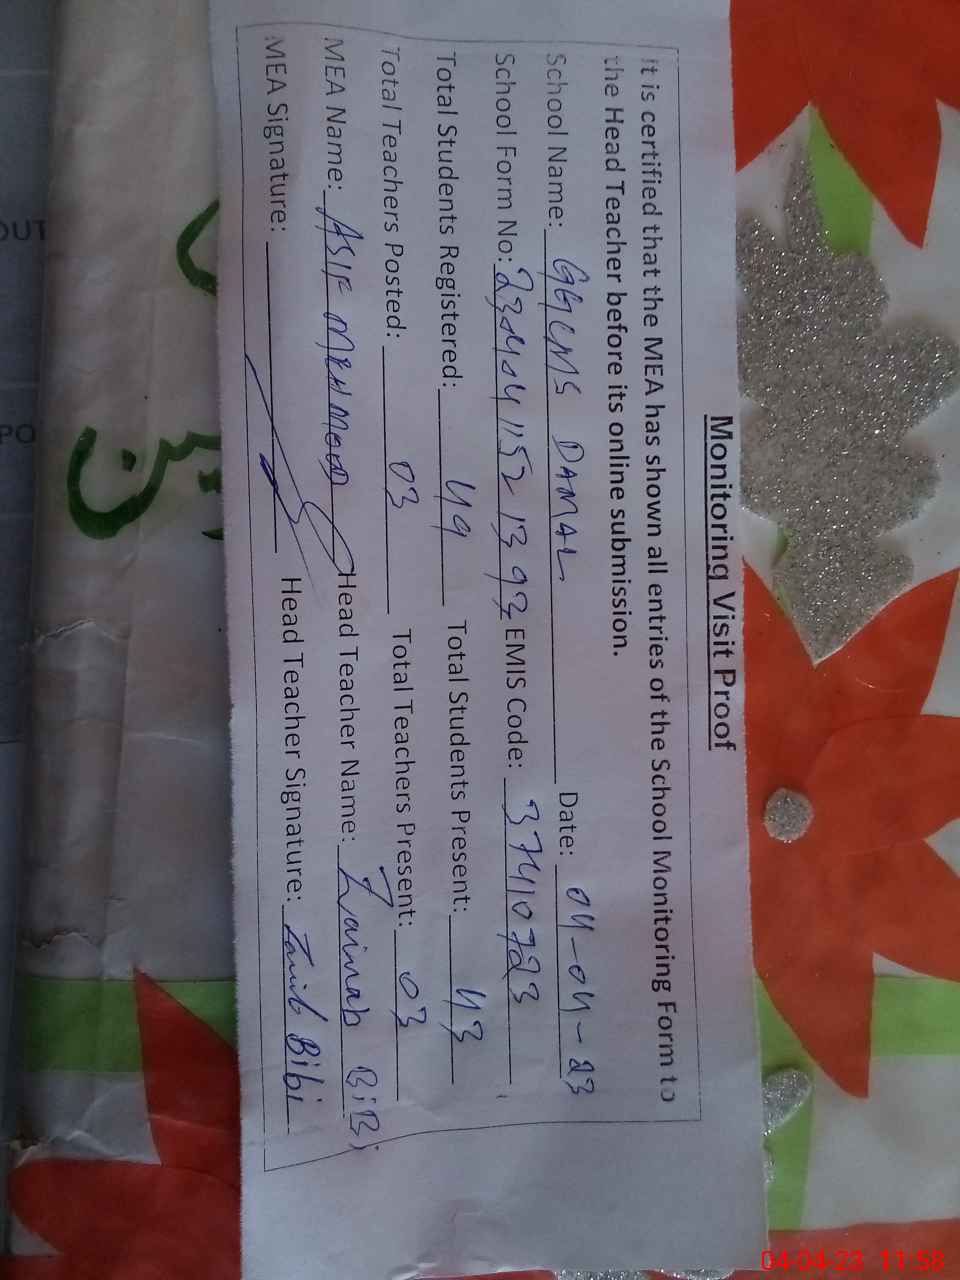 Monitoring Visit Proof
It is certified that the MEA has shown all entries of the School Monitoring Form to
the Head Teacher before its online submission.
School Name: GGCMS DAMAL Date: 04-04-23
School Form No: EMIS Code: 37410723
Total Students Registered: 49 Total Students Present: 43
Total Teachers Posted: 03 Total Teachers Present: 03
MEA Name: ASIF MEHMOOD Head Teacher Name: Zainab BiBi
MEA Signature: Head Teacher Signature: Zainab Bibi
OUT
PO
04-04-23 11:58